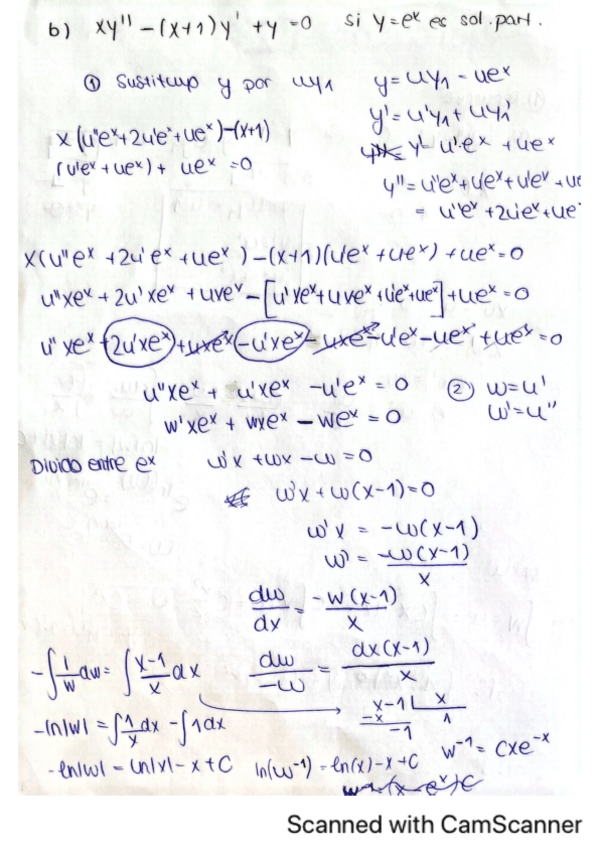 b) xy'' - (x+1)y' + y = 0 si y=eˣ es sol. part.
① Sustituyo y por uy₁ y = uy₁ = ueˣ
y' = u'y₁ + uy₁'
x(u''eˣ+2u'eˣ+ueˣ)-(x+1) y' = u'·eˣ + ueˣ
(u'eˣ+ueˣ) + ueˣ = 0 y'' = u''eˣ+u'eˣ+u'eˣ+ue
= u''eˣ+2u'eˣ+ue
x(u''eˣ + 2u'eˣ + ueˣ) - (x+1)(u'eˣ + ueˣ) + ueˣ = 0
u''xeˣ + 2u'xeˣ + uxeˣ - [u'xeˣ+uxeˣ+u'eˣ+ueˣ] + ueˣ = 0
u''xeˣ + 2u'xeˣ + uxeˣ - u'xeˣ - uxeˣ - u'eˣ - ueˣ + ueˣ = 0
u''xeˣ + u'xeˣ - u'eˣ = 0 ② w=u'
w'xeˣ + wxeˣ - weˣ = 0 w'=u''
Divido entre eˣ w'x + wx - w = 0
w'x + w(x-1) = 0
w'x = -w(x-1)
w' = -w(x-1)/x
dw/dx = -w(x-1)/x
-∫1/w dw = ∫(x-1)/x dx dw/-w = dx(x-1)/x
x-1 | x
-x 1
-1
-ln|w| = ∫1/x dx - ∫1dx
-ln|w| = ln|x| - x + C ln(w⁻¹) = ln(x) - x + C w⁻¹ = Cxe⁻ˣ
Scanned with CamScanner